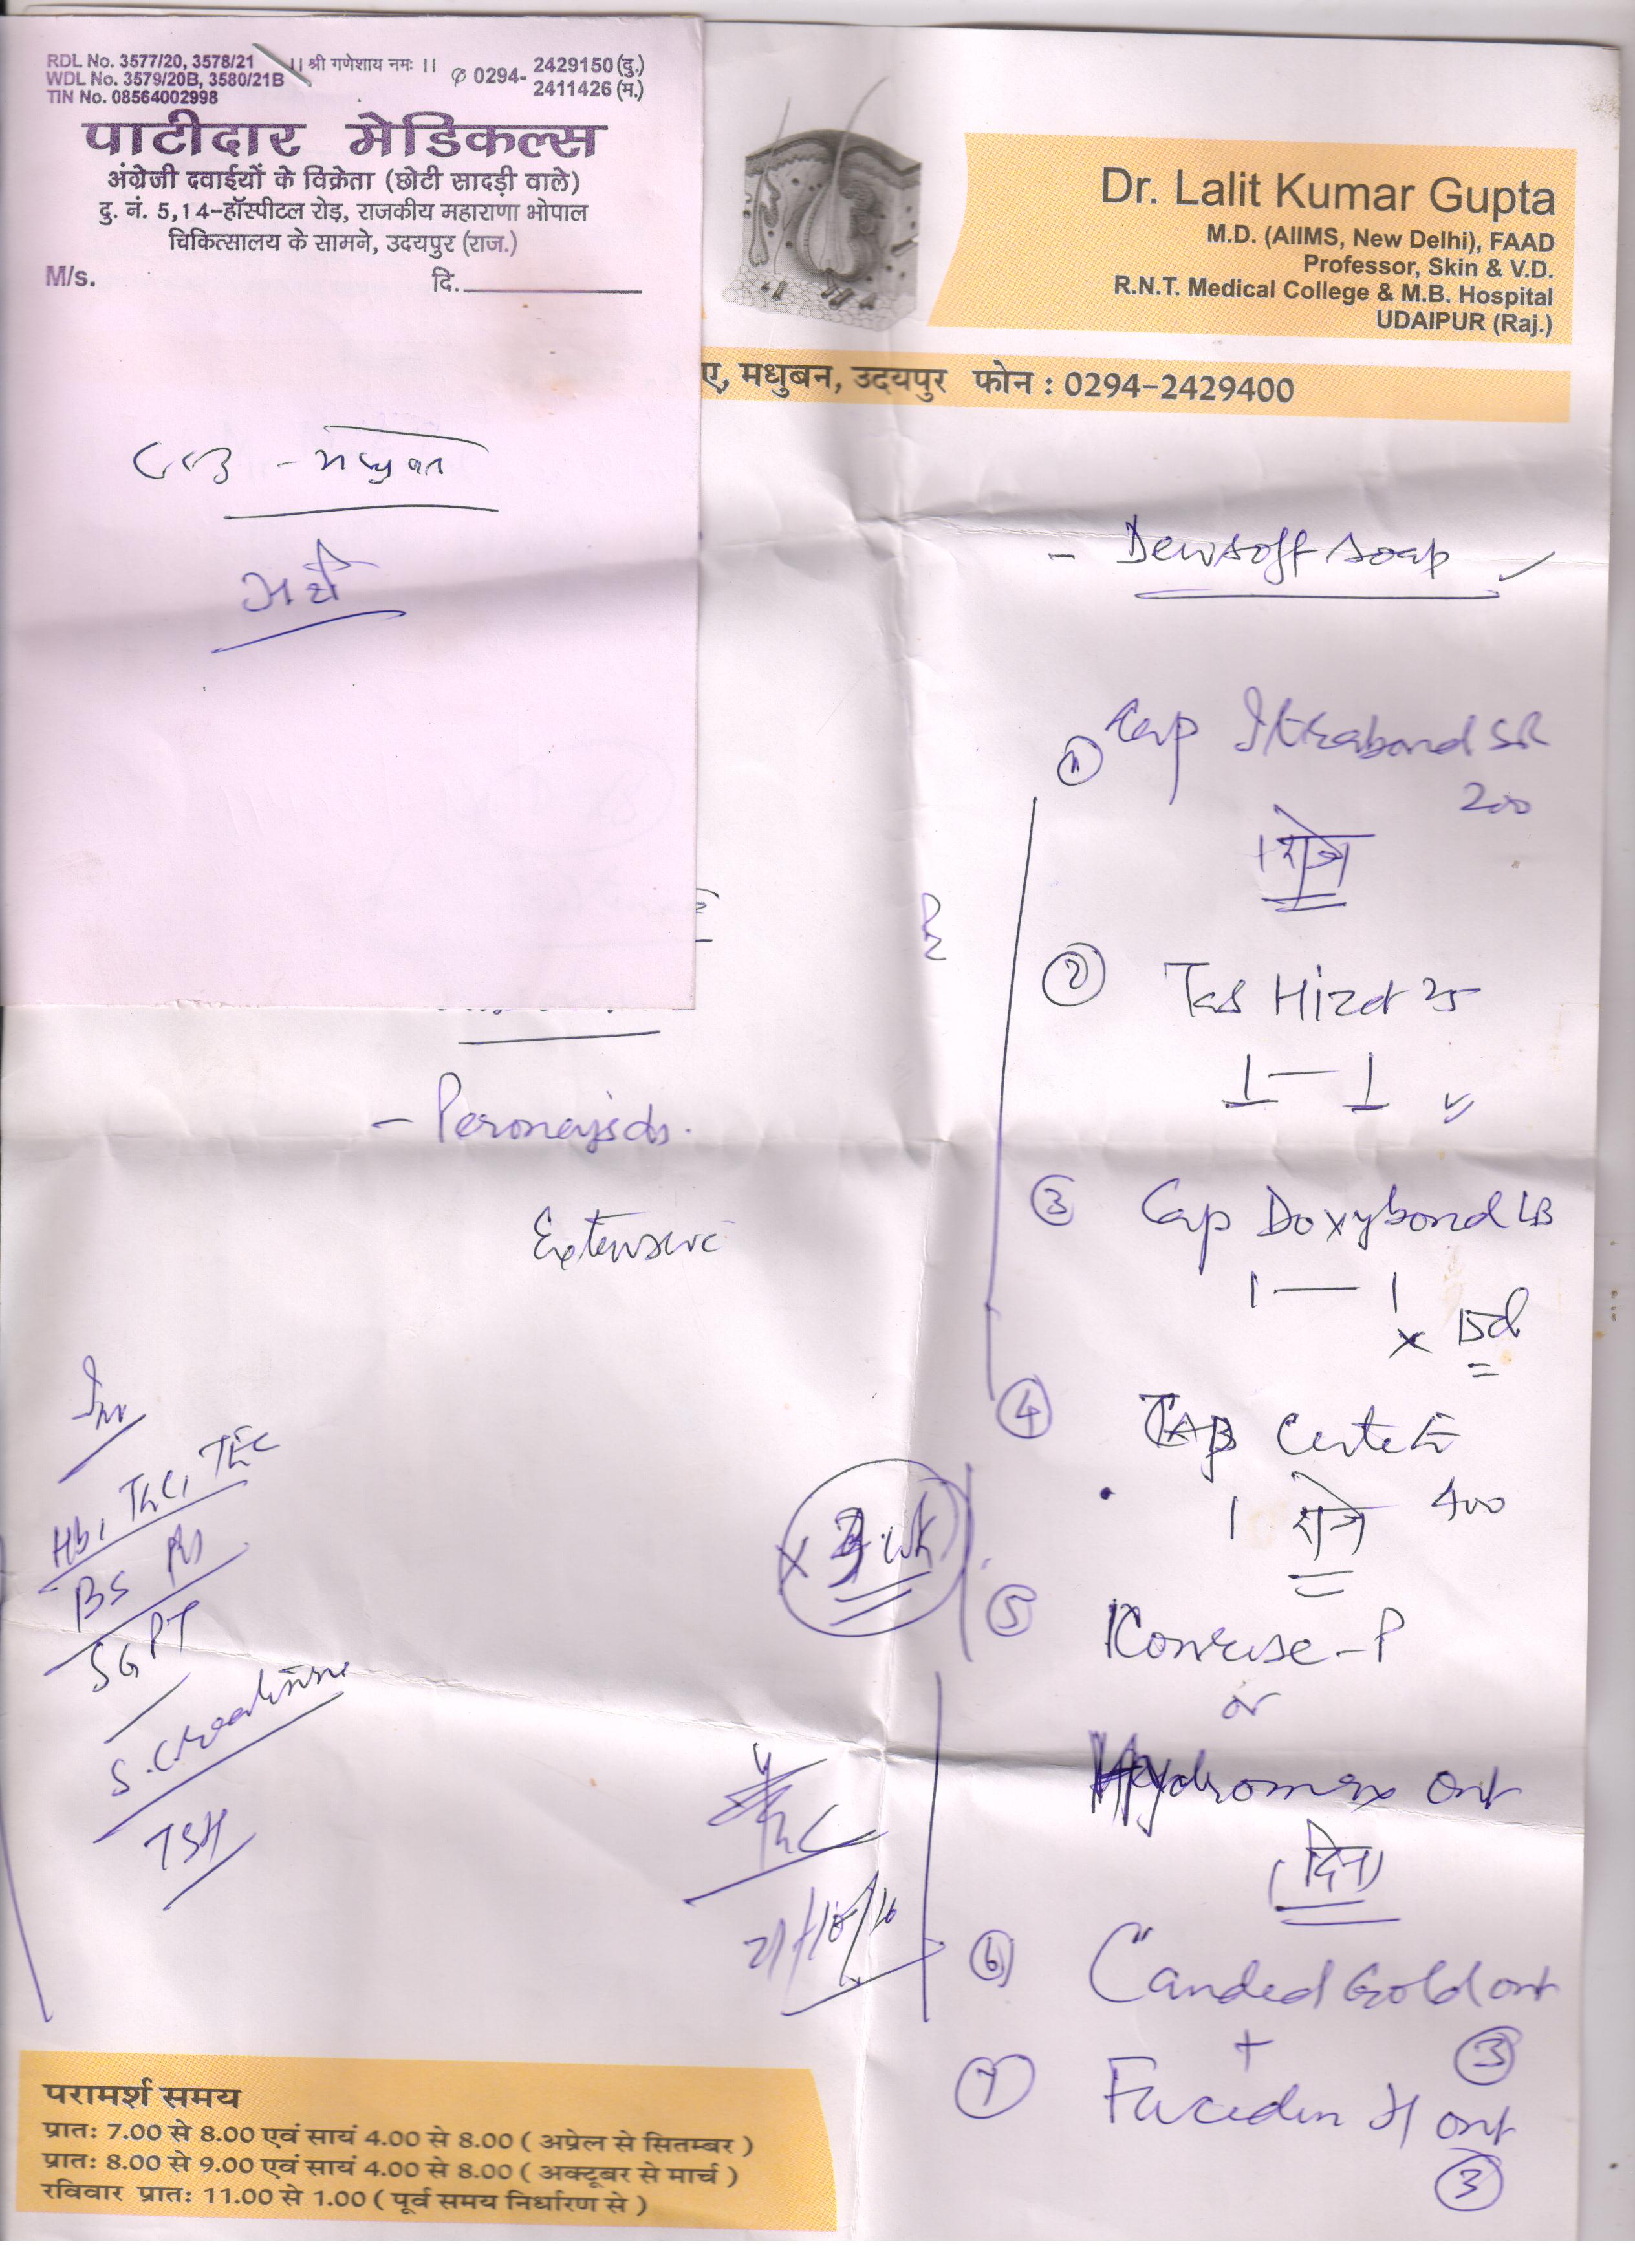 RDL No. 3577/20, 3578/21
WDL No. 3579/20B, 3580/21B
TIN No. 08564002998
।। श्री गणेशाय नमः ।।
✆ 0294- 2429150 (दु.)
2411426 (म.)
पाटीदार मेडिकल्स
अंग्रेजी दवाईयों के विक्रेता (छोटी सादड़ी वाले)
दु. नं. 5,14-हॉस्पीटल रोड़, राजकीय महाराणा भोपाल
चिकित्सालय के सामने, उदयपुर (राज.)
M/s. दि.
Dr. Lalit Kumar Gupta
M.D. (AIIMS, New Delhi), FAAD
Professor, Skin & V.D.
R.N.T. Medical College & M.B. Hospital
UDAIPUR (Raj.)
ए, मधुबन, उदयपुर फोन : 0294-2429400
- Dewsoft soap
① Cap Itrabond SR
200
1 रात्रे
② Tab Hizet 25
1 — 1
③ Cap Doxybond LB
1 — 1
x 15d
④ TAB Certe E
400
1 रात्रे
⑤ Konruse-P
or
Hydromax ont
(दिन)
⑥ Canded Gold ont
③
+
⑦ Fucidin H ont
③
Extensive
Inv
Hb, TLC, TEC
BS RS
SGPT
S. Creatinine
TSH
x 3 wk
परामर्श समय
प्रातः 7.00 से 8.00 एवं सायं 4.00 से 8.00 ( अप्रेल से सितम्बर )
प्रातः 8.00 से 9.00 एवं सायं 4.00 से 8.00 ( अक्टूबर से मार्च )
रविवार प्रातः 11.00 से 1.00 ( पूर्व समय निर्धारण से )